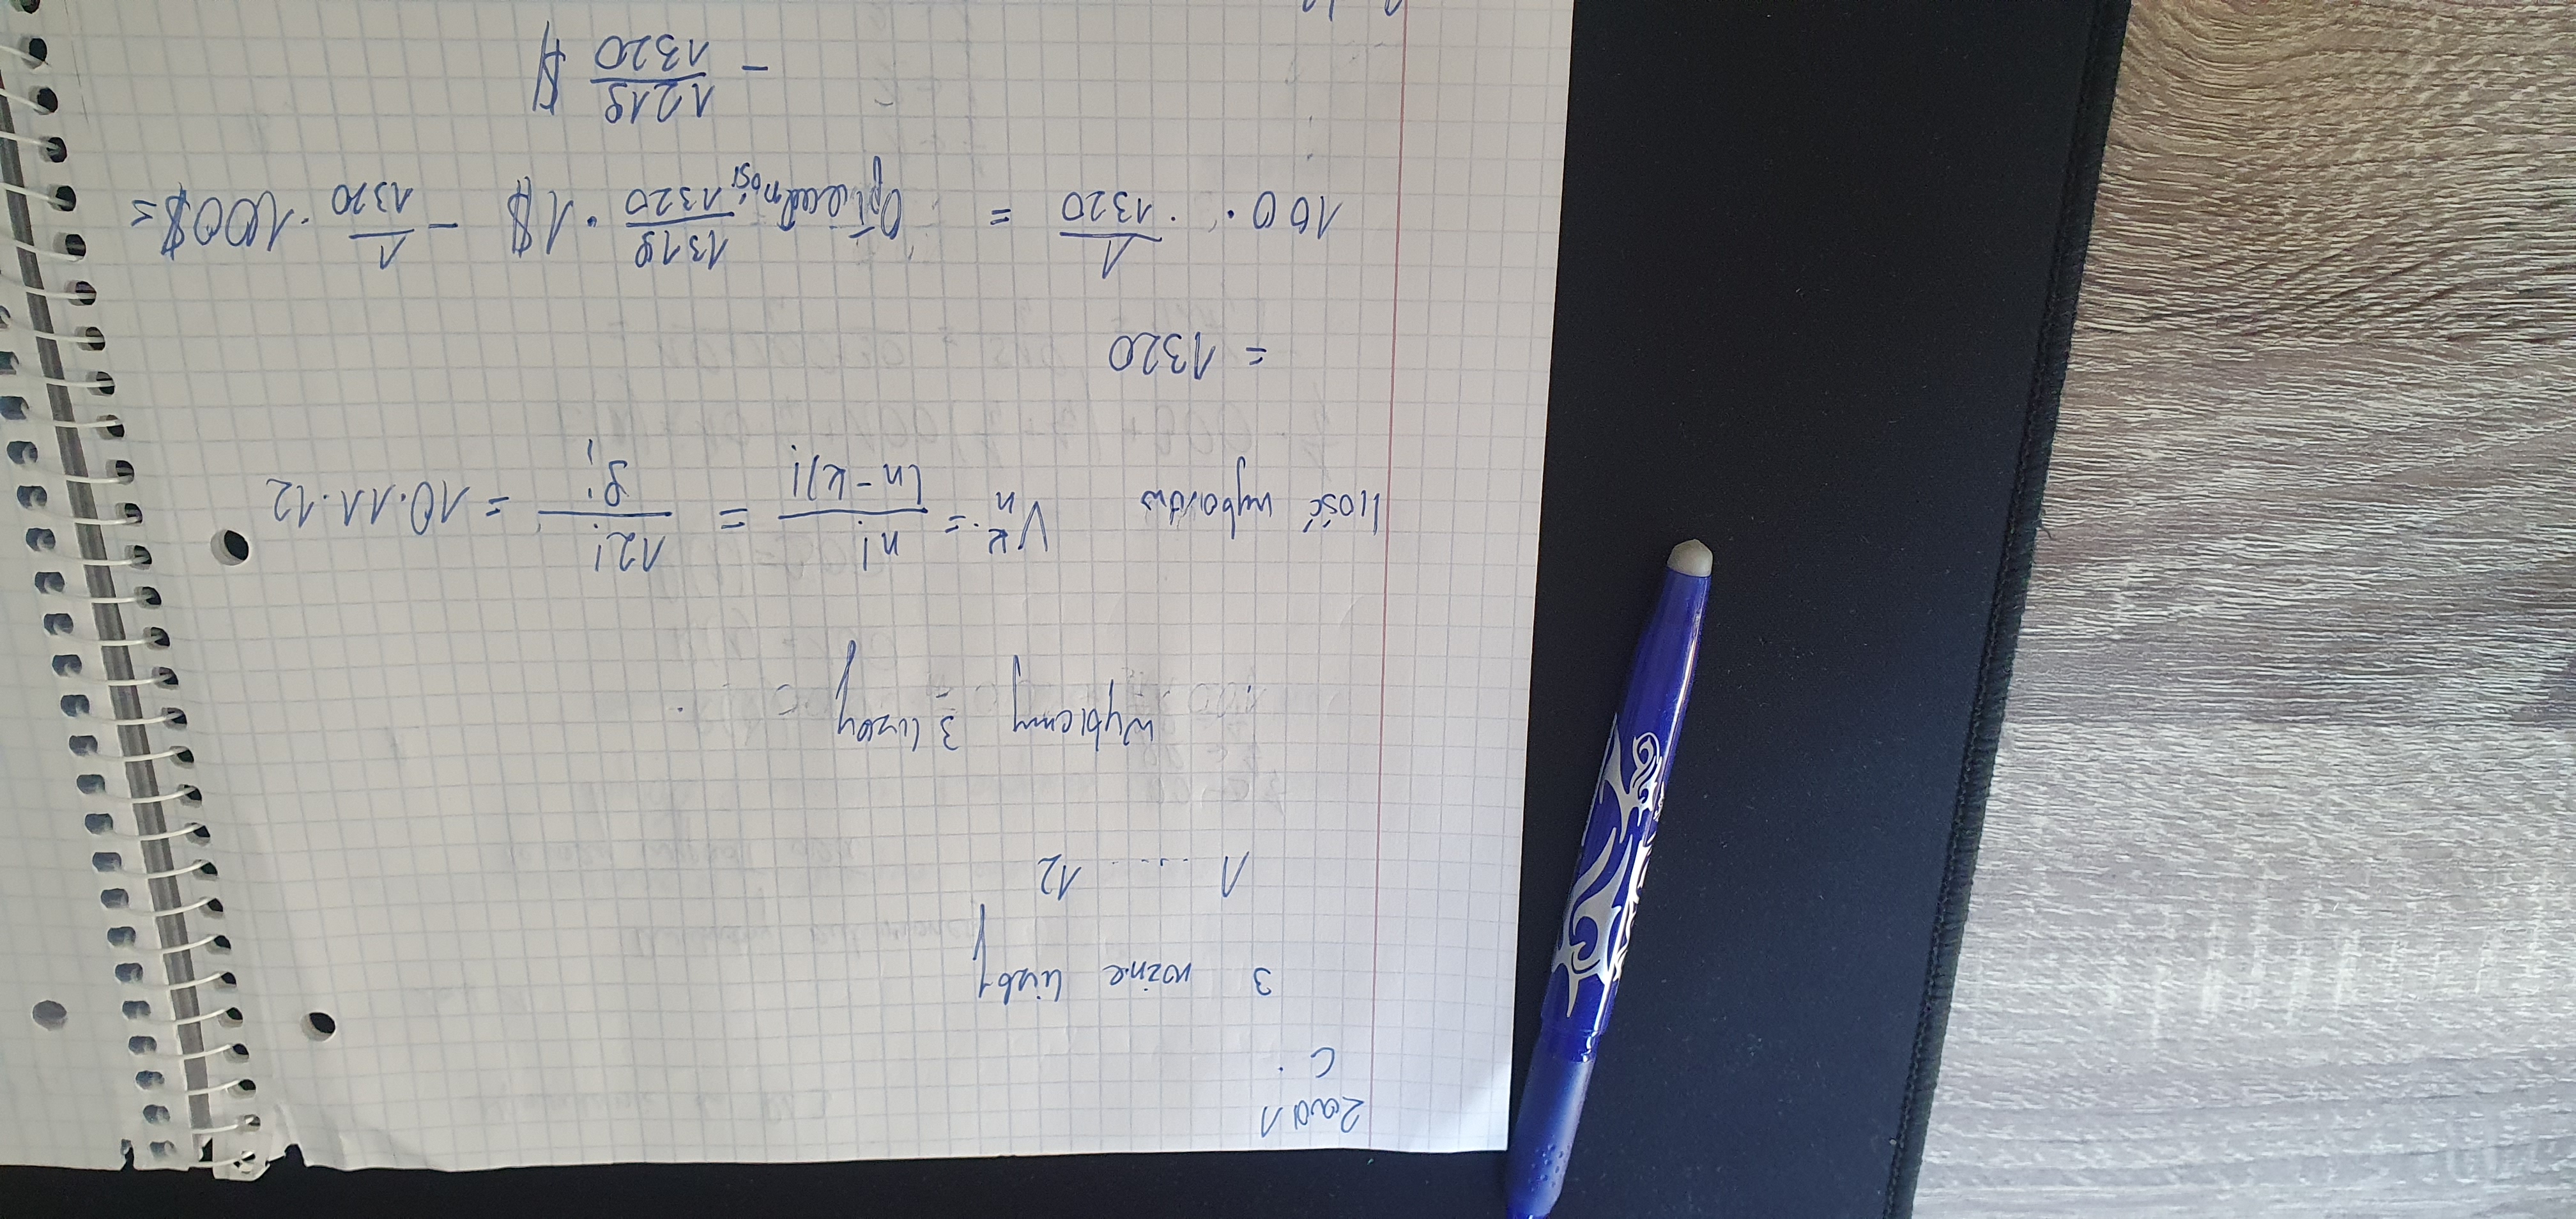 Zad 1
C.
3 rożne liczby
1 ..... 12
Wybiramy 3 liczby
Ilość wyborów V_n^k = n!/(n-k)! = 12!/9! = 10·11·12
= 1320
100 · 1/1320 = Opłacalność 1319/1320 · 1$ - 1/1320 · 100$ =
- 1219/1320 $